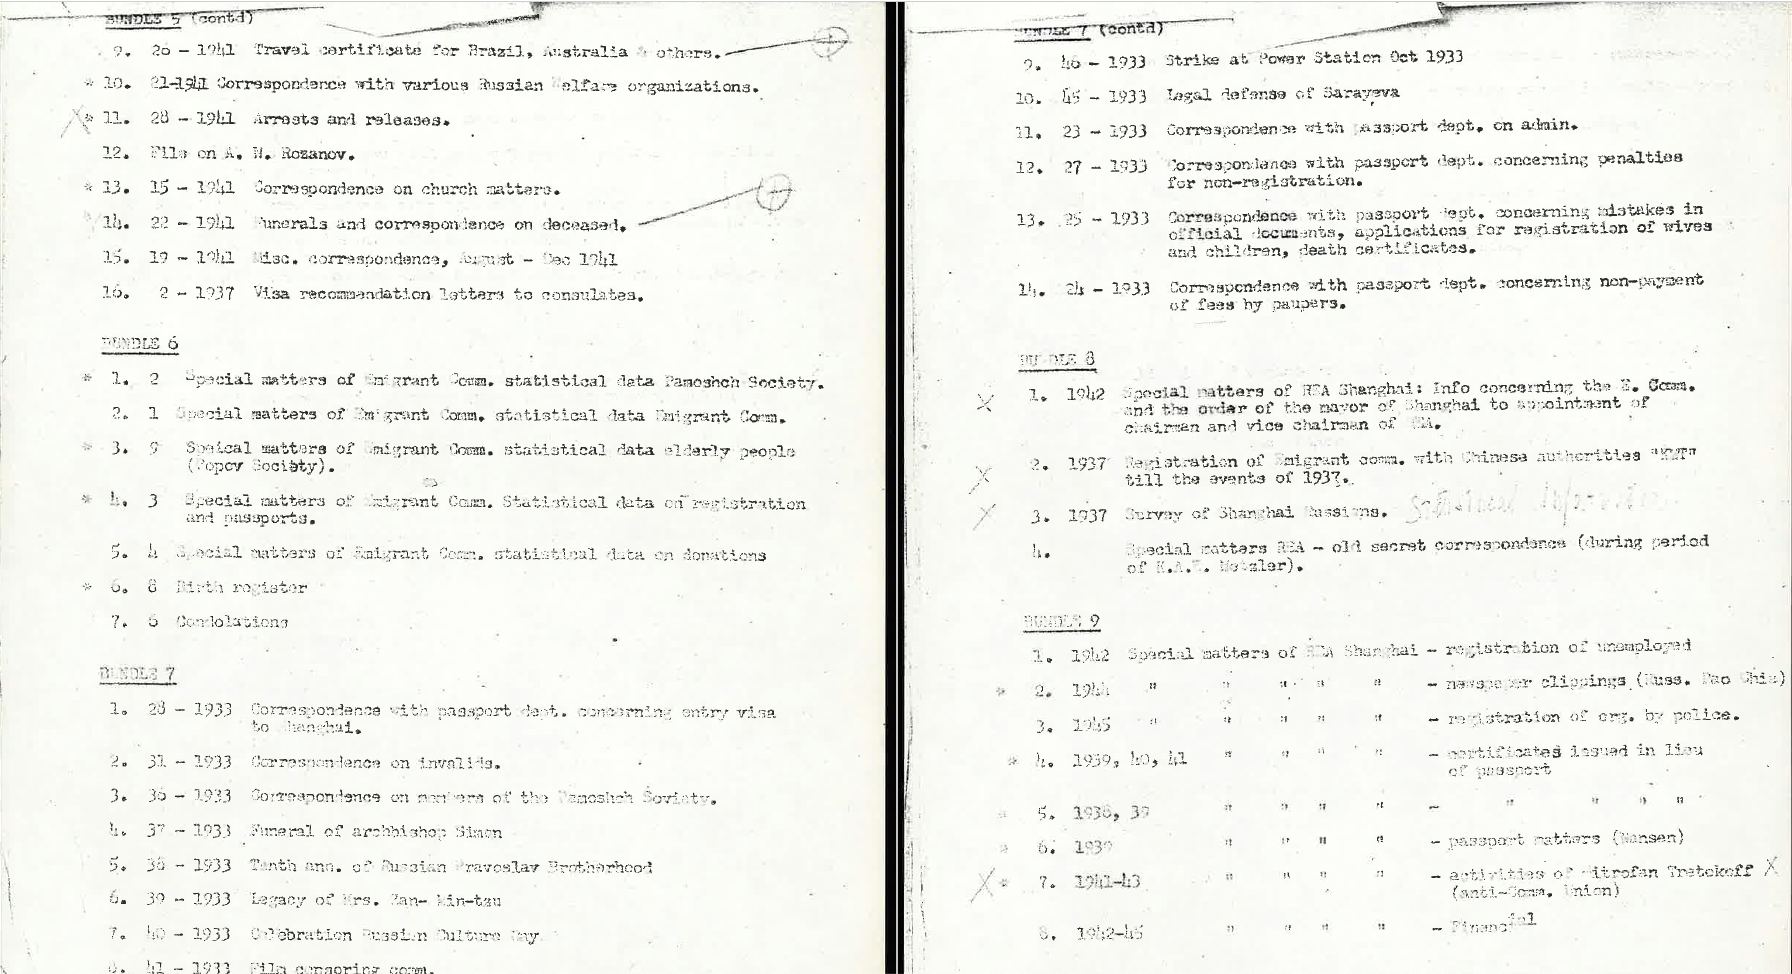 BUNDLE 5 (contd)
9. 26 - 1941 Travel certificate for Brazil, Australia & others.
* 10. 21-1941 Correspondence with various Russian Welfare organizations.
X * 11. 28 - 1941 Arrests and releases.
12. File on A. N. Rozanov.
* 13. 15 - 1941 Correspondence on church matters.
14. 22 - 1941 Funerals and correspondence on deceased.
15. 19 - 1941 Misc. correspondence, August - Dec 1941
16. 2 - 1937 Visa recommendation letters to consulates.
BUNDLE 6
* 1. 2 Special matters of Emigrant Comm. statistical data Pamoshch Society.
2. 1 Special matters of Emigrant Comm. statistical data Emigrant Comm.
* 3. 9 Speical matters of Emigrant Comm. statistical data elderly people
(Popov Society).
* 4. 3 Special matters of Emigrant Comm. Statistical data on registration
and passports.
5. 4 Special matters of Emigrant Comm. statistical data on donations
* 6. 8 Birth register
7. 6 Condolations
BUNDLE 7
1. 28 - 1933 Correspondence with passport dept. concerning entry visa
to Shanghai.
2. 31 - 1933 Correspondence on invalids.
3. 36 - 1933 Correspondence on members of the Pamoshch Soviety.
4. 37 - 1933 Funeral of archbishop Simon
5. 38 - 1933 Tenth ann. of Russian Pravoslav Brotherhood
6. 39 - 1933 Legacy of Mrs. Zan- Min-tzu
7. 40 - 1933 Celebration Russian Culture Day.
8. 41 - 1933 Film censoring comm.
BUNDLE 7 (contd)
9. 46 - 1933 Strike at Power Station Oct 1933
10. 45 - 1933 Legal defense of Sarayeva
11. 23 - 1933 Correspondence with passport dept. on admin.
12. 27 - 1933 Correspondence with passport dept. concerning penalties
for non-registration.
13. 25 - 1933 Correspondence with passport dept. concerning mistakes in
official documents, applications for registration of wives
and children, death certificates.
14. 24 - 1933 Correspondence with passport dept. concerning non-payment
of fees by paupers.
BUNDLE 8
X 1. 1942 Special matters of REA Shanghai: Info concerning the E. Comm.
and the order of the mayor of Shanghai to appointment of
chairman and vice chairman of REA.
X 2. 1937 Registration of Emigrant comm. with Chinese authorities "KMT"
till the events of 1937.
X 3. 1937 Survey of Shanghai Russians. Statistical Information
4. Special matters REA - old secret correspondence (during period
of K.A.E. Metzler).
BUNDLE 9
1. 1942 Special matters of REA Shanghai - registration of unemployed
* 2. 1944 " " " " " - newspaper clippings (Russ. Pao Chia)
3. 1945 " " " " " - registration of org. by police.
* 4. 1939, 40, 41 " " " " - certificates issued in lieu
of passport
* 5. 1938, 39 " " " " - " " " "
* 6. 1939 " " " " - passport matters (Nansen)
X * 7. 1941-43 " " " " - activities of Mitrofan Tretokoff X
(anti-Comm. Union)
8. 1942-45 " " " " - Financial